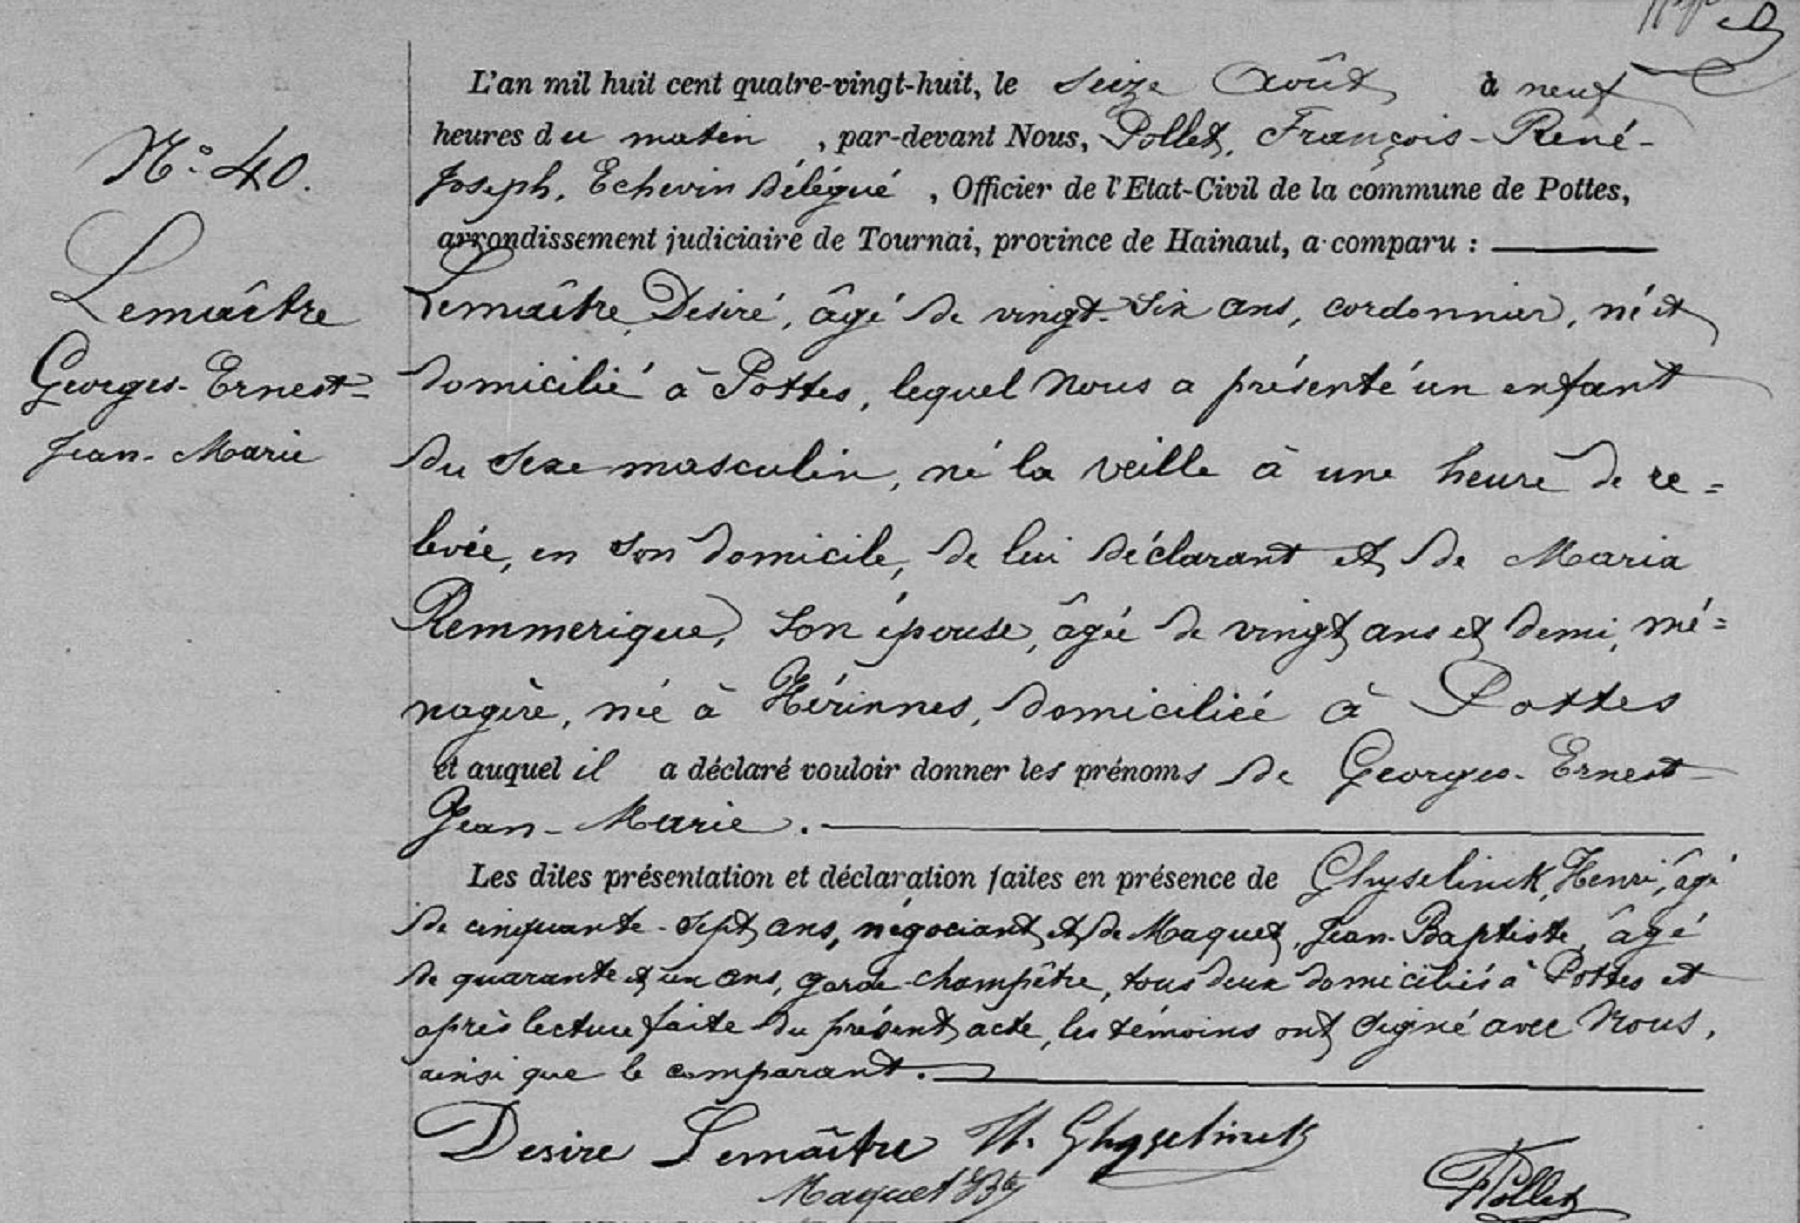 L'an mil huit cent quatre-vingt-huit, le seize Août à neuf
heures du matin , par-devant Nous, Pollet, François-René-
Joseph, Echevin délégué , Officier de l'Etat-Civil de la commune de Pottes,
arrondissement judiciaire de Tournai, province de Hainaut, a comparu :
N° 40.
Lemaître
Georges-Ernest=
Jean-Marie
Lemaître, Desiré, âgé de vingt-six ans, cordonnier, né et
domicilié à Pottes, lequel Nous a présenté un enfant
du sexe masculin, né la veille à une heure de re=
levée, en son domicile, de lui déclarant et de Maria
Remmerique, son épouse, âgée de vingt ans et demi, mé=
nagère, née à Hérinnes, domiciliée à Pottes
et auquel il a déclaré vouloir donner les prénoms de Georges-Ernest-
Jean-Marie.
Les dites présentation et déclaration faites en présence de Ghyselinck, Henri, âgé
de cinquante-sept ans, négociant et de Maquet, Jean-Baptiste, âgé
de quarante et un ans, garde-champêtre, tous deux domiciliés à Pottes et
après lecture faite du présent acte, les témoins ont signé avec Nous,
ainsi que le comparant.
Desire Lemaître H. Ghyselinck
Maquet Bte FPollet